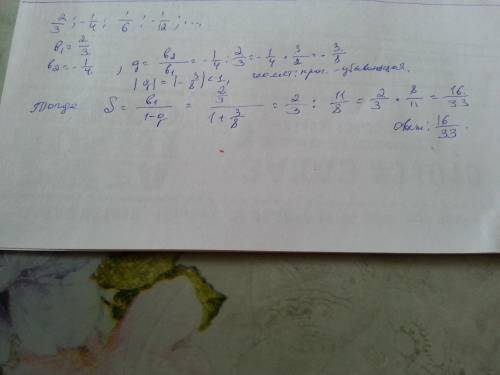 2/3 ; -1/4 ; 1/6 ; -1/12 ; ...
b₁ = 2/3
b₂ = -1/4 , q = b₂/b₁ = -1/4 : 2/3 = -1/4 · 3/2 = -3/8
|q| = |-3/8| < 1, геомет. прог. - убывающая.
Тогда S = b₁/(1-q) = (2/3)/(1 + 3/8) = 2/3 : 11/8 = 2/3 · 8/11 = 16/33
Ответ: 16/33.